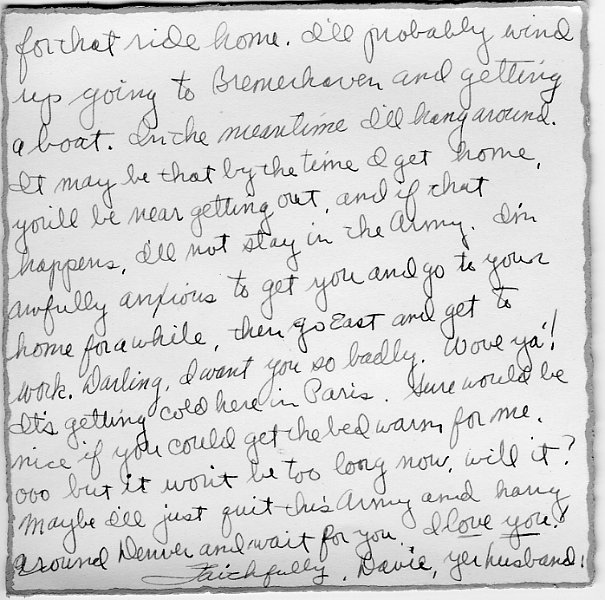 for that ride home. I'll probably wind
up going to Bremerhaven and getting
a boat. In the meantime I'll hang around.
It may be that by the time I get home,
you'll be near getting out, and if that
happens, I'll not stay in the Army. I'm
awfully anxious to get you and go to your
home for a while, then go East and get to
work. Darling, I want you so badly. Wove ya'!
It's getting cold here in Paris. Sure would be
nice if you could get the bed warm for me.
ooo but it won't be too long now, will it?
Maybe I'll just quit this Army and hang
around Denver and wait for you. I love you!
Faithfully, Davie, yer husband!